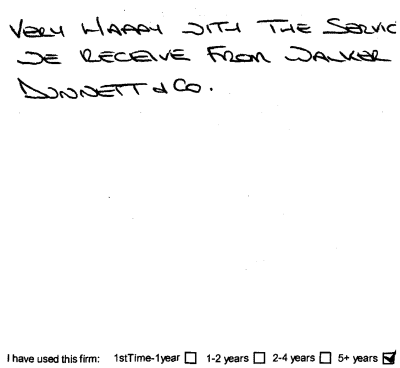 VERY HAPPY WITH THE SERVIC
WE RECEIVE FROM WALKER
DUNNETT & CO.
I have used this firm: 1stTime-1year ☐ 1-2 years ☐ 2-4 years ☐ 5+ years ☑